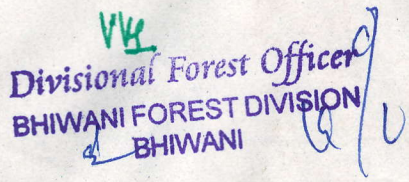 Divisional Forest Officer
BHIWANI FOREST DIVISION
BHIWANI